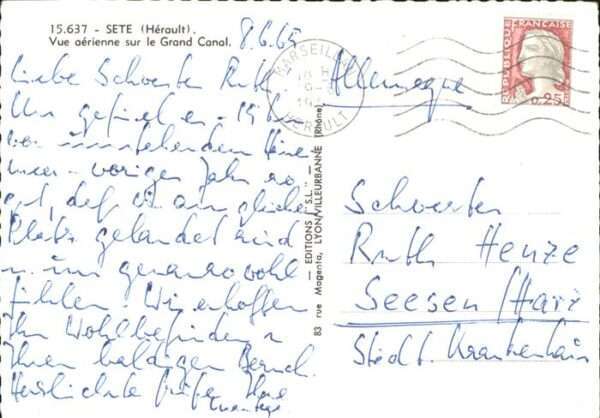 15.637 - SETE (Hérault).
Vue aérienne sur le Grand Canal.
8.6.65
Liebe Schwester Ruth
Uns gefiel es
vorigen Jahr so
gut, daß wir am gleichen
Platz gelandet sind
u. uns genauso wohl
fühlen. Wir erhoffen
Ihr Wohlbefinden u
Ihren baldigen Besuch.
Herzlichste Grüße Ihre
MARSEILLAN
HERAULT
Allemagne
REPUBLIQUE FRANÇAISE
0,25
EDITIONS "S.L."
83 rue Magenta, LYON/VILLEURBANNE (Rhône)
Schwester
Ruth Henze
Seesen/Harz
Städt. Krankenhaus